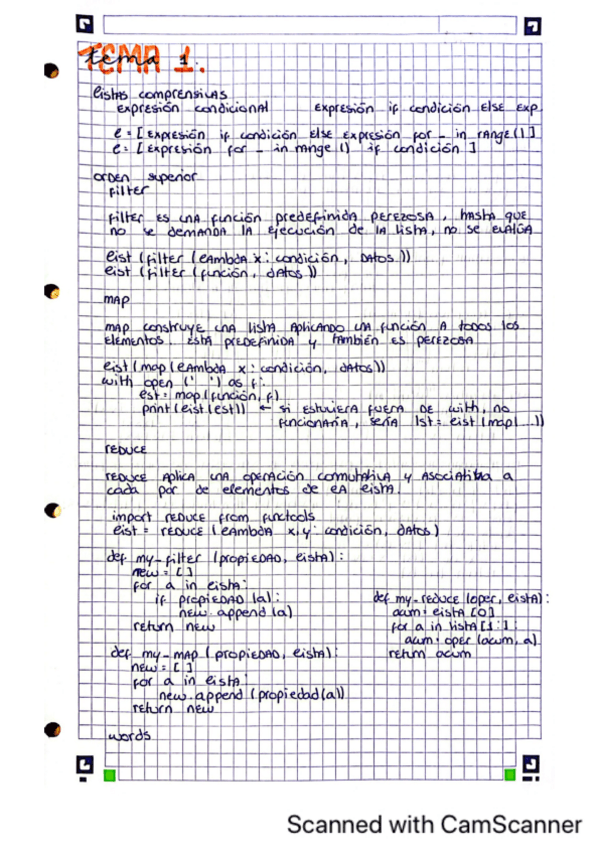 tema 1.
listas comprensivas
expresión condicional    expresión if condición else exp
l = [expresión if condición else expresión for _ in range()]
l = [expresión for _ in range() if condición]
orden superior
filter
filter es una función predefinida perezosa, hasta que
no se demanda la ejecución de la lista, no se evalúa
list (filter (lambda x: condición, datos))
list (filter (función, datos))
map
map construye una lista aplicando una función a todos los
elementos. Está predefinida y también es perezosa
list (map (lambda x: condición, datos))
with open (' ') as f:
lst = map (función, f)
print (list (lst)) ← si estuviera fuera de with, no
funcionaría, sería lst = list (map(...))
reduce
reduce aplica una operación conmutativa y asociativa a
cada par de elementos de la lista.
import reduce from functools
list = reduce (lambda x, y: condición, datos)
def my_filter (propiedad, lista):
new = []
for a in lista:
if propiedad (a):
new.append (a)
return new
def my_map (propiedad, lista):
new = []
for a in lista:
new.append (propiedad(a))
return new
def my_reduce (oper, lista):
acum = lista [0]
for a in lista [1:]:
acum = oper (acum, a)
return acum
words
Scanned with CamScanner